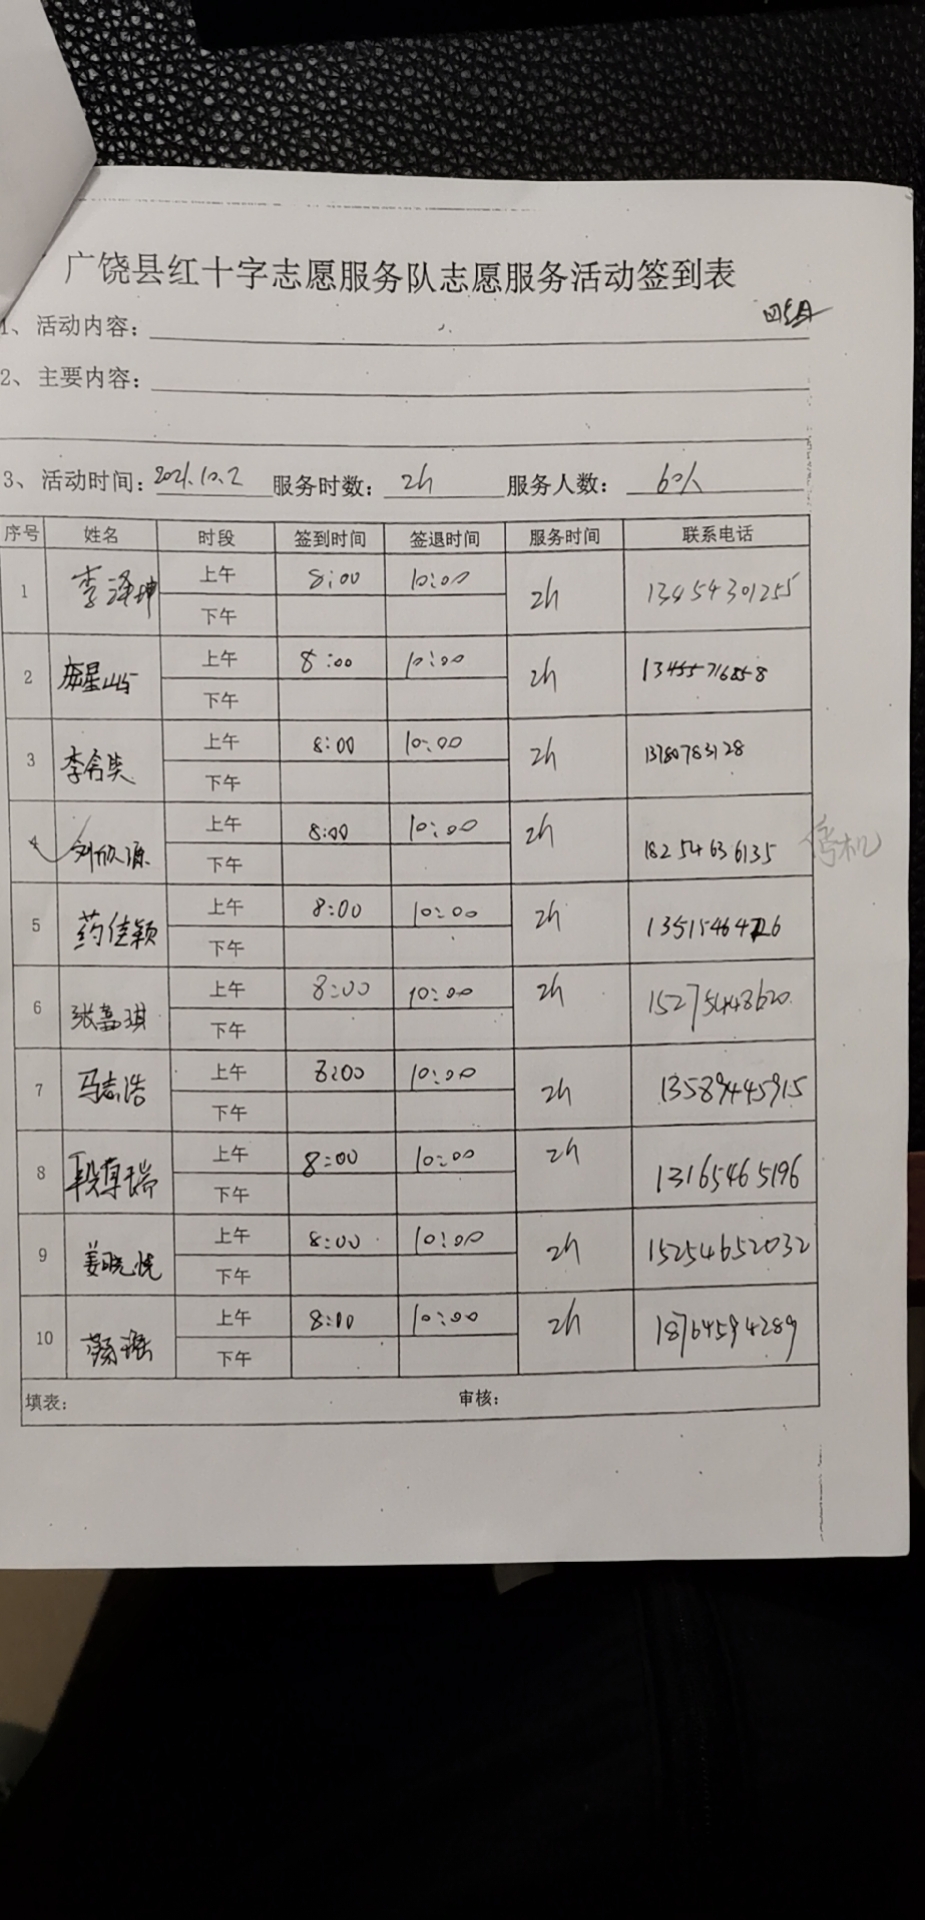 广饶县红十字志愿服务队志愿服务活动签到表
四组
1、活动内容:
2、主要内容:
3、活动时间: 2021.10.2 服务时数: 2h 服务人数: 60人
序号 姓名 时段 签到时间 签退时间 服务时间 联系电话
1 李泽坤 上午 8:00 10:00 2h 13454301255
下午
2 上午 8:00 10:00 2h 13455716858
下午
3 上午 8:00 10:00 2h 13780783128
下午
4 刘欣源 上午 8:00 10:00 2h 18254636135 停机
下午
5 药佳颖 上午 8:00 10:00 2h
下午
6 张嘉琪 上午 8:00 10:00 2h 15275448620
下午
7 马志浩 上午 8:00 10:00 2h 13589445915
下午
8 上午 8:00 10:00 2h 13165465196
下午
9 姜晓悦 上午 8:00 10:00 2h 15254652032
下午
10 上午 8:00 10:00 2h 18764594289
下午
填表: 审核: